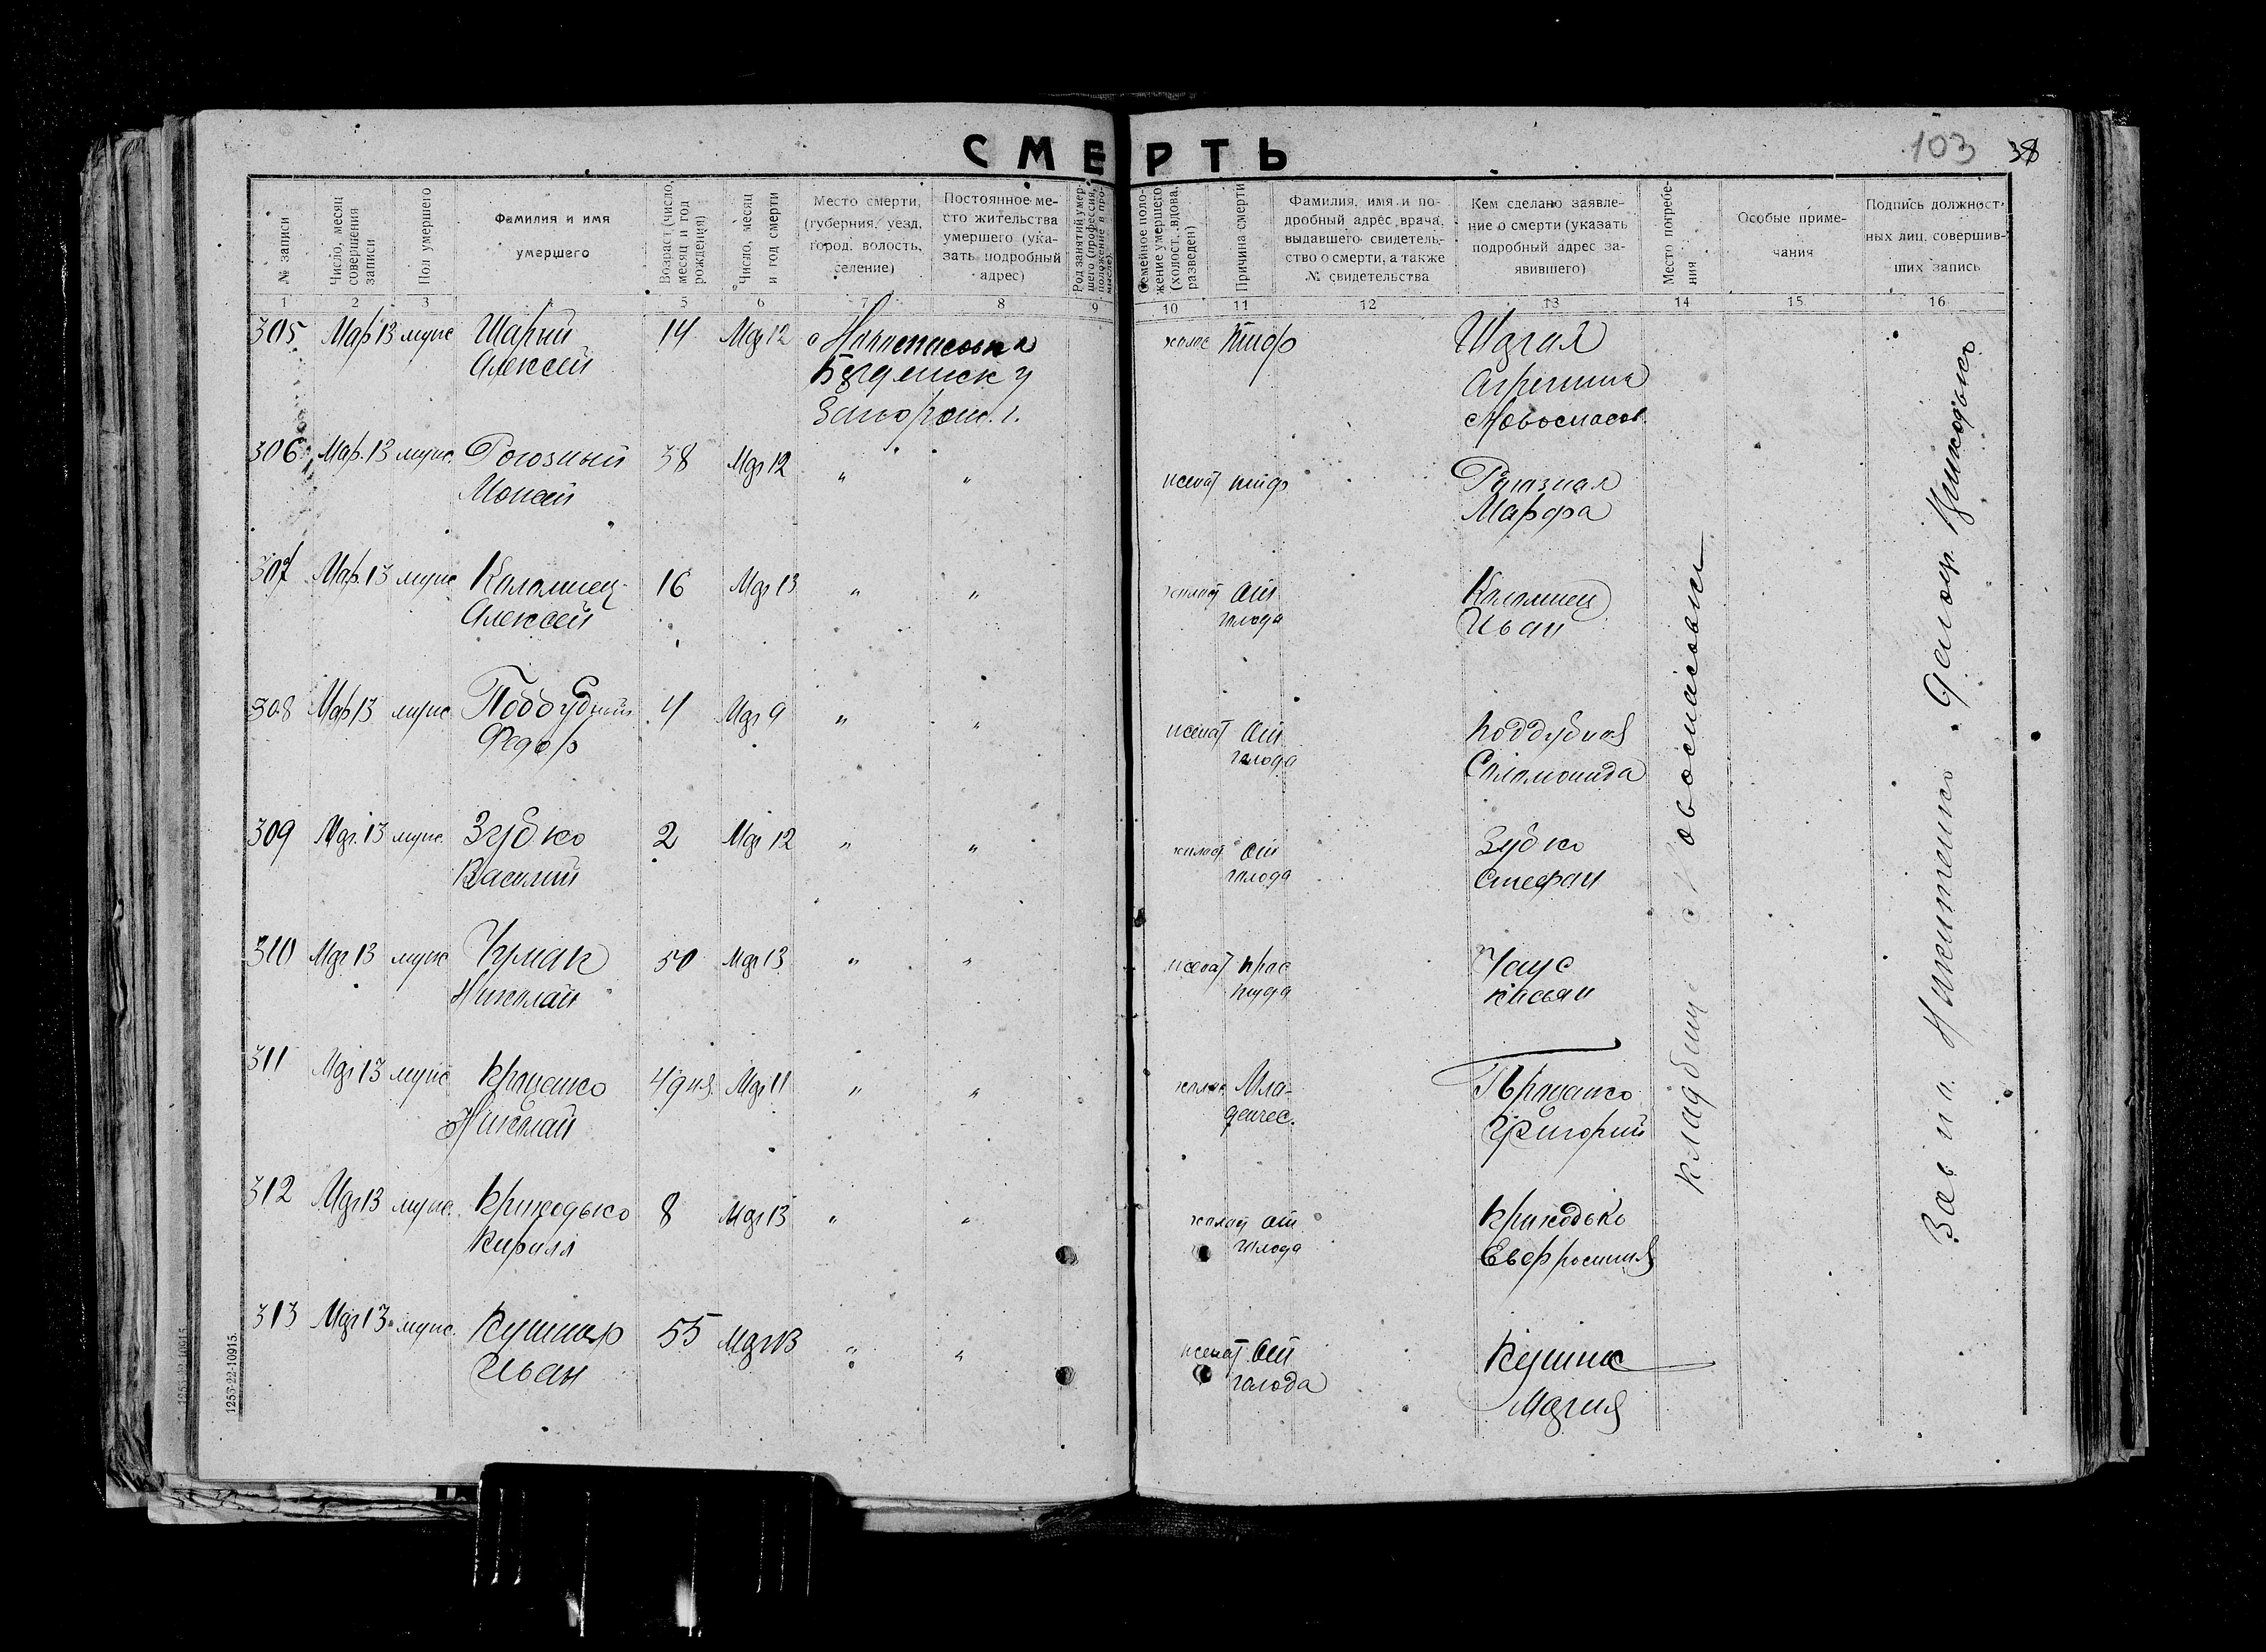 СМЕРТЬ
103 38
№ записи
Число, месяц совершения записи
Пол умершего
Фамилия и имя умершего
Возраст (число, месяц и год рождения)
Число, месяц и год смерти
Место смерти, (губерния, уезд, город, волость, селение)
Постоянное место жительства умершего (указать подробный адрес)
Род занятий умершего (профессия, положение в промысле)
Семейное положение умершего (холост, вдова, разведен)
Причина смерти
Фамилия, имя и подробный адрес врача, выдавшего свидетельство о смерти, а также № свидетельства
Кем сделано заявление о смерти (указать подробный адрес заявившего)
Место погребения
Особые примечания
Подпись должностных лиц, совершивших запись
1 2 3 4 5 6 7 8 9 10 11 12 13 14 15 16
305 Мар 13 муж Шарий 14 Мар 12 с Новоспасовка холос тиф Шарая
Алексей Бердянск у Агрипина
Запорож. г. Новоспасов.
306 Мар. 13 муж. Рогозный 38 Мар 12 " " женат тиф Рогозная
Мокей Марфа
307 Мар. 13 муж Коломиец 16 Мар 13 " " холост от Коломиец
Алексей голода Иван
308 Мар 13 муж Поддубный 4 Мар 9 " " женат от Поддубная
Федор голода Соломонида
309 Мар. 13 муж. Зубко 2 Мар 12 " " холост от Зубко
Василий голода Стефан
310 Мар 13 муж Чумак 50 Мар 13 " " женат Чаус
Николай Касьян
311 Мар 13 муж Кроценко 4 дня. Мар 11 " " холос Мла-
Николай денчес. Григорий
312 Мар 13 муж. Крикодько 8 Мар 13 " " холост от Крикодько
Кирилл голода Евфросиния
313 Мар 13 муж. Кушнир 55 Мар 13 " " женат от Кушнир
Иван голода Мария
кладбище с Новоспасовки
Зав п.п. Никитенко Делопр. Крикодько
1253-22-10915.